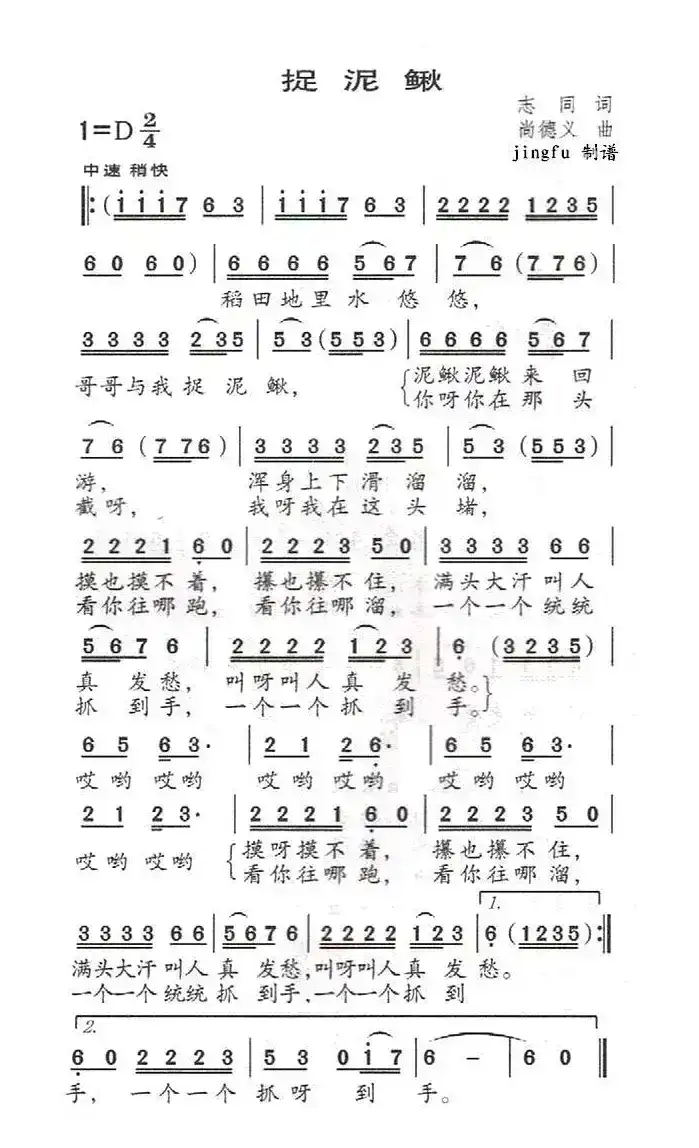 捉泥鳅
志同词
1=D 2/4
尚德义 曲
jingfu 制谱
中速 稍快
‖:(i i i 7 6 3 | i i i 7 6 3 | 2 2 2 2 1 2 3 5 |
6 0 6 0) | 6 6 6 6 5 6 7 | 7 6 (7 7 6) |
稻田地里水悠悠,
3 3 3 3 2 3 5 | 5 3 (5 5 3) | 6 6 6 6 5 6 7 |
哥哥与我捉泥鳅, 泥鳅泥鳅来回
你呀你在那头
7 6 (7 7 6) | 3 3 3 3 2 3 5 | 5 3 (5 5 3) |
游, 浑身上下滑溜溜,
截呀, 我呀我在这头堵,
2 2 2 1 6 0 | 2 2 2 3 5 0 | 3 3 3 3 6 6 |
摸也摸不着, 攥也攥不住, 满头大汗叫人
看你往哪跑, 看你往哪溜, 一个一个统统
5 6 7 6 | 2 2 2 2 1 2 3 | 6 (3 2 3 5) |
真发愁, 叫呀叫人真发愁。
抓到手, 一个一个抓到手。
6 5 6 3· | 2 1 2 6· | 6 5 6 3· |
哎哟哎哟 哎哟哎哟 哎哟哎哟
2 1 2 3· | 2 2 2 1 6 0 | 2 2 2 3 5 0 |
哎哟哎哟 摸呀摸不着, 攥也攥不住,
看你往哪跑, 看你往哪溜,
1.
3 3 3 3 6 6 | 5 6 7 6 | 2 2 2 2 1 2 3 | 6 (1 2 3 5) :‖
满头大汗叫人真发愁,叫呀叫人真发愁。
一个一个统统抓到手,一个一个抓到
2.
6 0 2 2 2 3 | 5 3 0 i 7 | 6 – | 6 0 ‖
手, 一个一个抓呀到手。